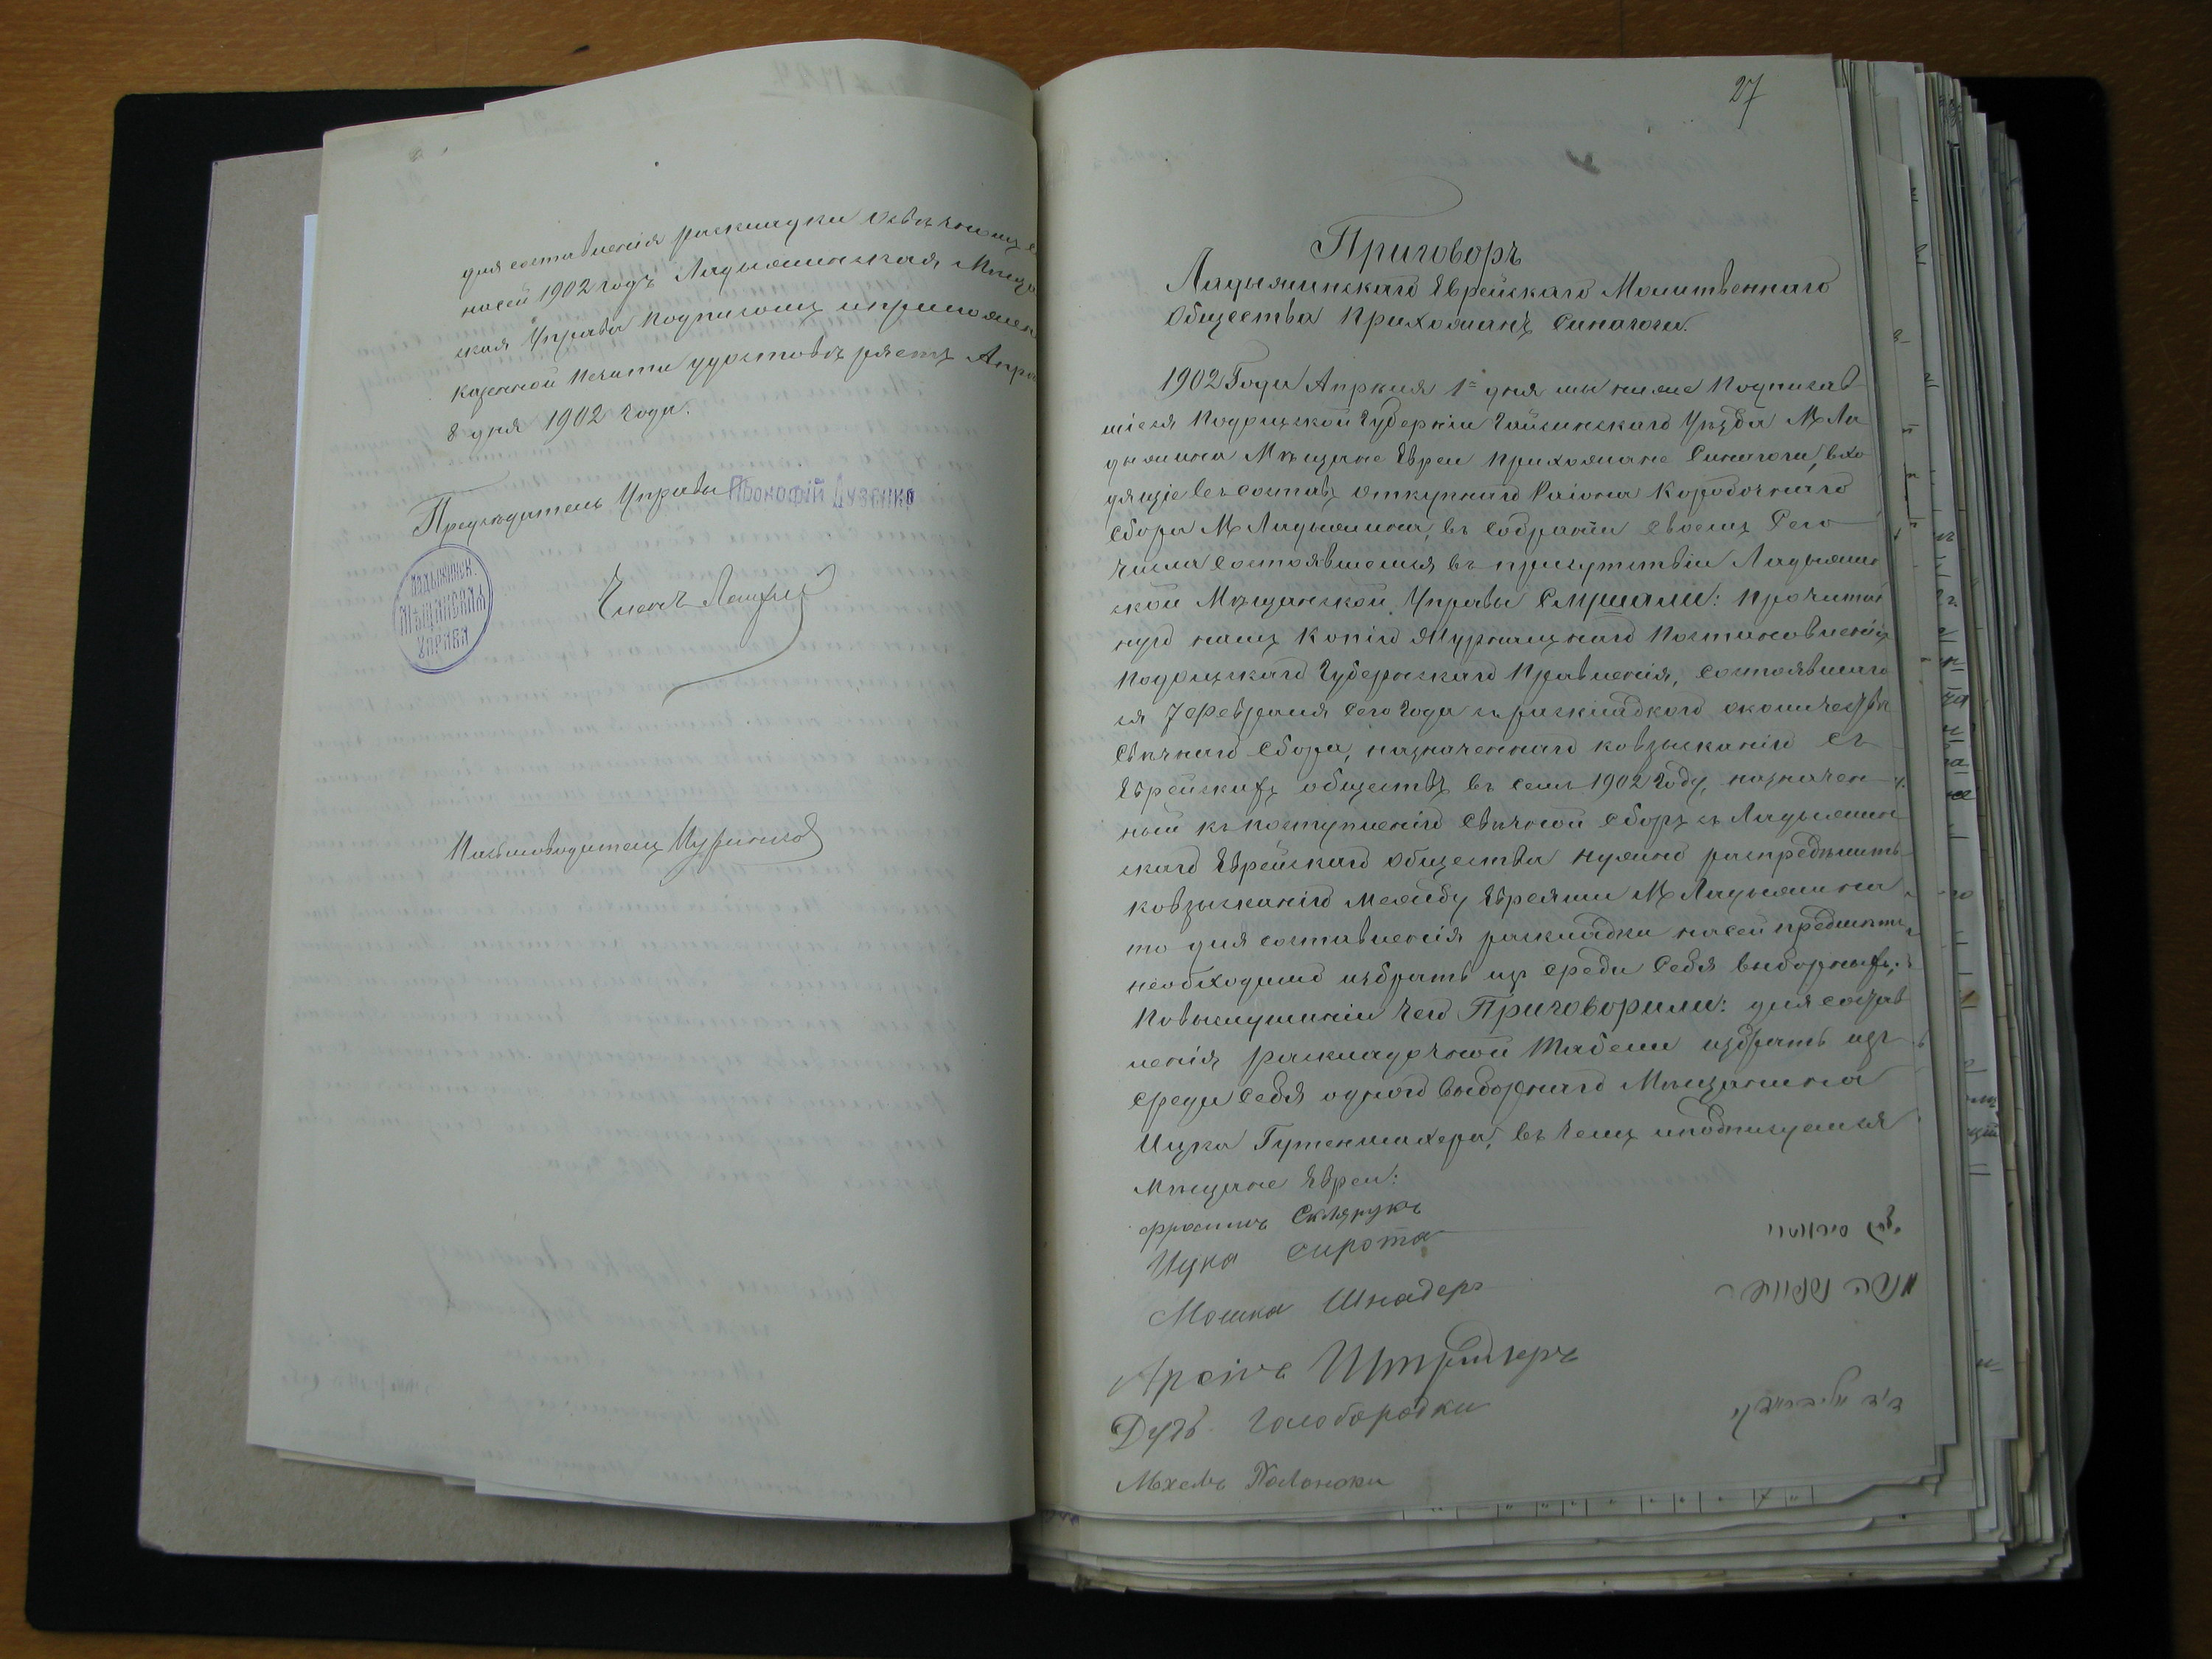 для составленія раскладки свѣчнаго
на сей 1902 годъ Ладыжинская Мѣща
ская Управа подписомъ и приложен
казенной печати удостовѣряетъ Апрѣ
8 дня 1902 года.
Предсѣдатель Управы Прокофій Дузенко
Ладыжинск.
Мѣщанская
Управа
Членъ
Письмоводитель
27
Приговоръ
Ладыжинскаго Еврейскаго Молитвеннаго
Общества Прихожанъ Синагоги.
1902 Года Апрѣля 1го дня мы ниже подписав
шіеся Подольской Губерніи Гайсинскаго Уѣзда М Ла
дыжина Мѣщане Евреи прихожане Синагоги, вхо
дящіе въ составъ откупнаго Раіона Коробочнаго
сбора М Ладыжина, въ собраніи своемъ сего
числа состоявшемся въ присутствіи Ладыжин
ской Мѣщанской Управы Слушали: прочитан
ную намъ копію журнальнаго постановленія
Подольскаго Губернскаго Правленія, состоявшаго
ся 7 февраля сего года съ раскладкою о количествѣ
свѣчнаго сбора, назначеннаго ко взысканію съ
Еврейскихъ обществъ въ семъ 1902 году, назначен
ный къ поступленію свѣчной сборъ съ Ладыжин
скаго Еврейскаго общества нужно распредѣлить
ко взысканію между Евреями М Ладыжина
то для составленія раскладки на сей предметъ
необходимо избрать изъ среди себя выборныхъ,
По выслушаніи чего Приговорили: для состав
ленія раскладочной табели избрать изъ
среди себя одного выборнаго Мѣщанина
Ицка Гутенмахера, въ чемъ и подписуемся
Мѣщане Евреи:
Фроимъ Склярукъ
Ицка Сирота יצחק סיראטא
Мошка Шнадеръ משה
Аронъ
Дудь Голобородки דוד
Мехель